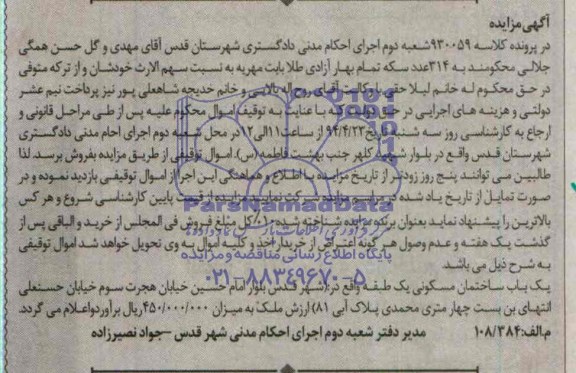 آگهی مزایده
در پرونده کلاسه ۹۳۰۰۵۹شعبه دوم اجرای احکام مدنی دادگستری شهرستان قدس آقای مهدی و گل حسن همگی
جلالی محکومند به ۳۱۴عدد سکه تمام بهار آزادی طلا بابت مهریه به نسبت سهم الارث خودشان و از ترکه متوفی
در حق محکوم له خانم لیلا حقی با وکالت آقای روح اله بالایی و خانم خدیجه شاهعلی پور نیز پرداخت نیم عشر
دولتی و هزینه های اجرایی در حق دولت که با عنایت به توقیف اموال محکوم علیه پس از طی مراحل قانونی و
ارجاع به کارشناسی روز سه شنبه تاریخ ۹۴/۴/۲۳ از ساعت۱۱الی۱۲در محل شعبه دوم اجرای احام مدنی دادگستری
شهرستان قدس واقع در بلوار شهید کلهر جنب بهشت فاطمه (س). اموال توقیفی از طریق مزایده بفروش برسد. لذا
طالبین می توانند پنج روز زودتر از تاریخ مزایده با اطلاع و هماهنگی این اجرا از اموال توقیفی بازدید نموده و در
صورت تمایل از تاریخ یاد شده در جلسه مزایده شرکت نمایند. مزایده از قیمت پایین کارشناسی شروع و هر کس
بالاترین را پیشنهاد نماید بعنوان برنده مزایده شناخته شده ۱۰٪ کل مبلغ فروش فی المجلس از خرید و الباقی پس از
گذشت یک هفته و عدم وصول هر گونه اعتراض از خریدار اخذ و کلیه اموال به وی تحویل خواهد شد اموال توقیفی
به شرح ذیل می باشد.
یک باب ساختمان مسکونی یک طبقه واقع در: (شهر قدس بلوار امام حسین خیابان هجرت سوم خیابان حسنعلی
انتهای بن بست چهار متری محمدی پلاک آبی ۸۱) ارزش ملک به میزان ۴۵۰/۰۰۰/۰۰۰ریال برآورد واعلام می گردد.
م.الف:۱۰۸/۳۸۴ مدیر دفتر شعبه دوم اجرای احکام مدنی شهر قدس –جواد نصیرزاده
ParsNamadData
پایگاه اطلاع رسانی مناقصه و مزایده
۰۲۱-۸۸۳۴۹۶۷۰-۵